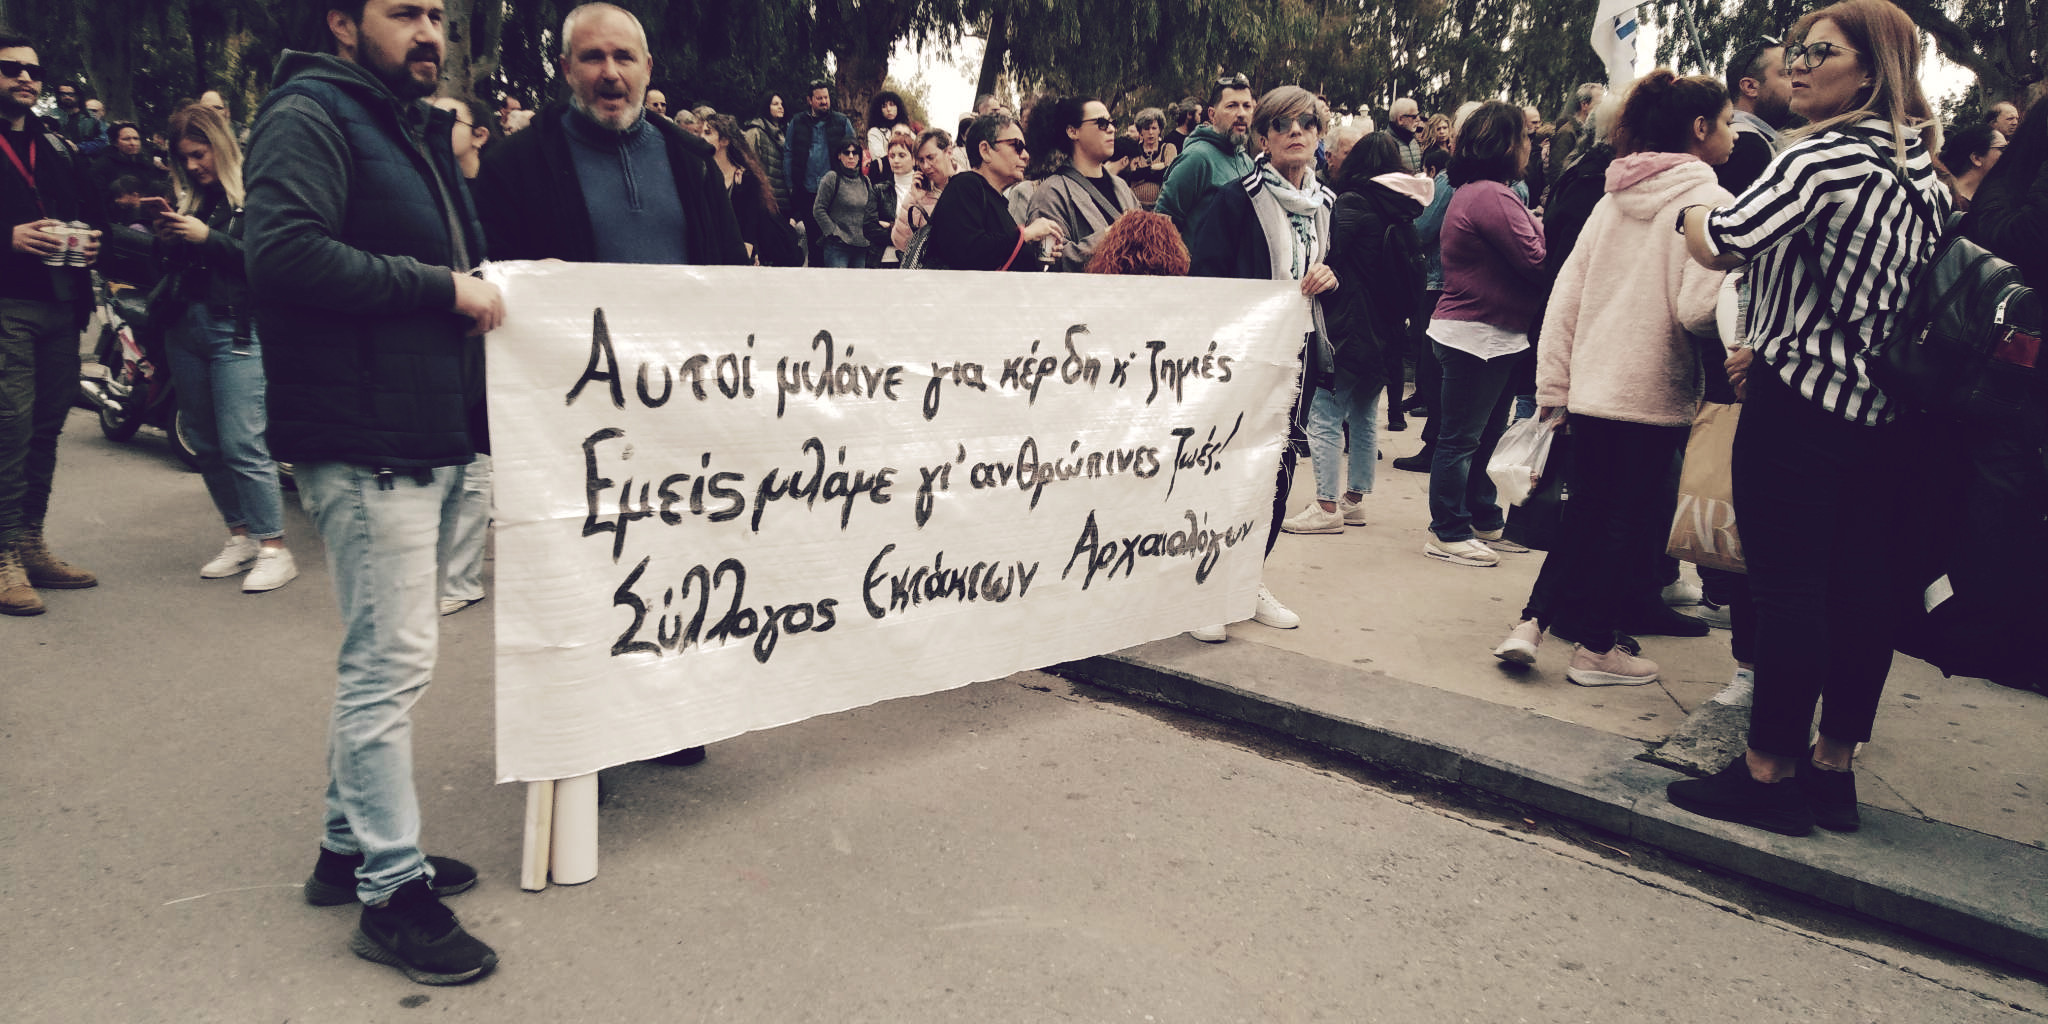 Αυτοί μιλάνε για κέρδη κ' ζημιές
Εμείς μιλάμε γι' ανθρώπινες ζωές!
Σύλλογος Εκτάκτων Αρχαιολόγων
ZAR